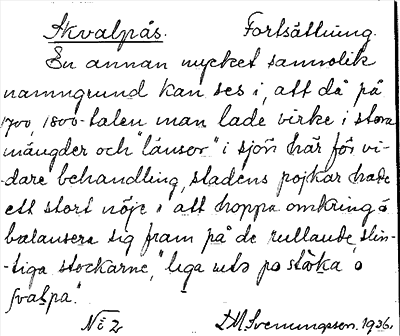 Skvalpås. Fortsättning.
En annan mycket sannolik
namngrund kan ses i, att då på
1700, 1800-talen man lade virke i stora
mängder och "länsor" i sjön här för vi-
-dare behandling, stadens pojkar hade
ett stort nöje i att hoppa omkring å
balansera sig fram på de rullande, slin-
-tiga stockarne, "liga uts po å
svalpa".
No 2 D.M. Svenungsson. 1926.